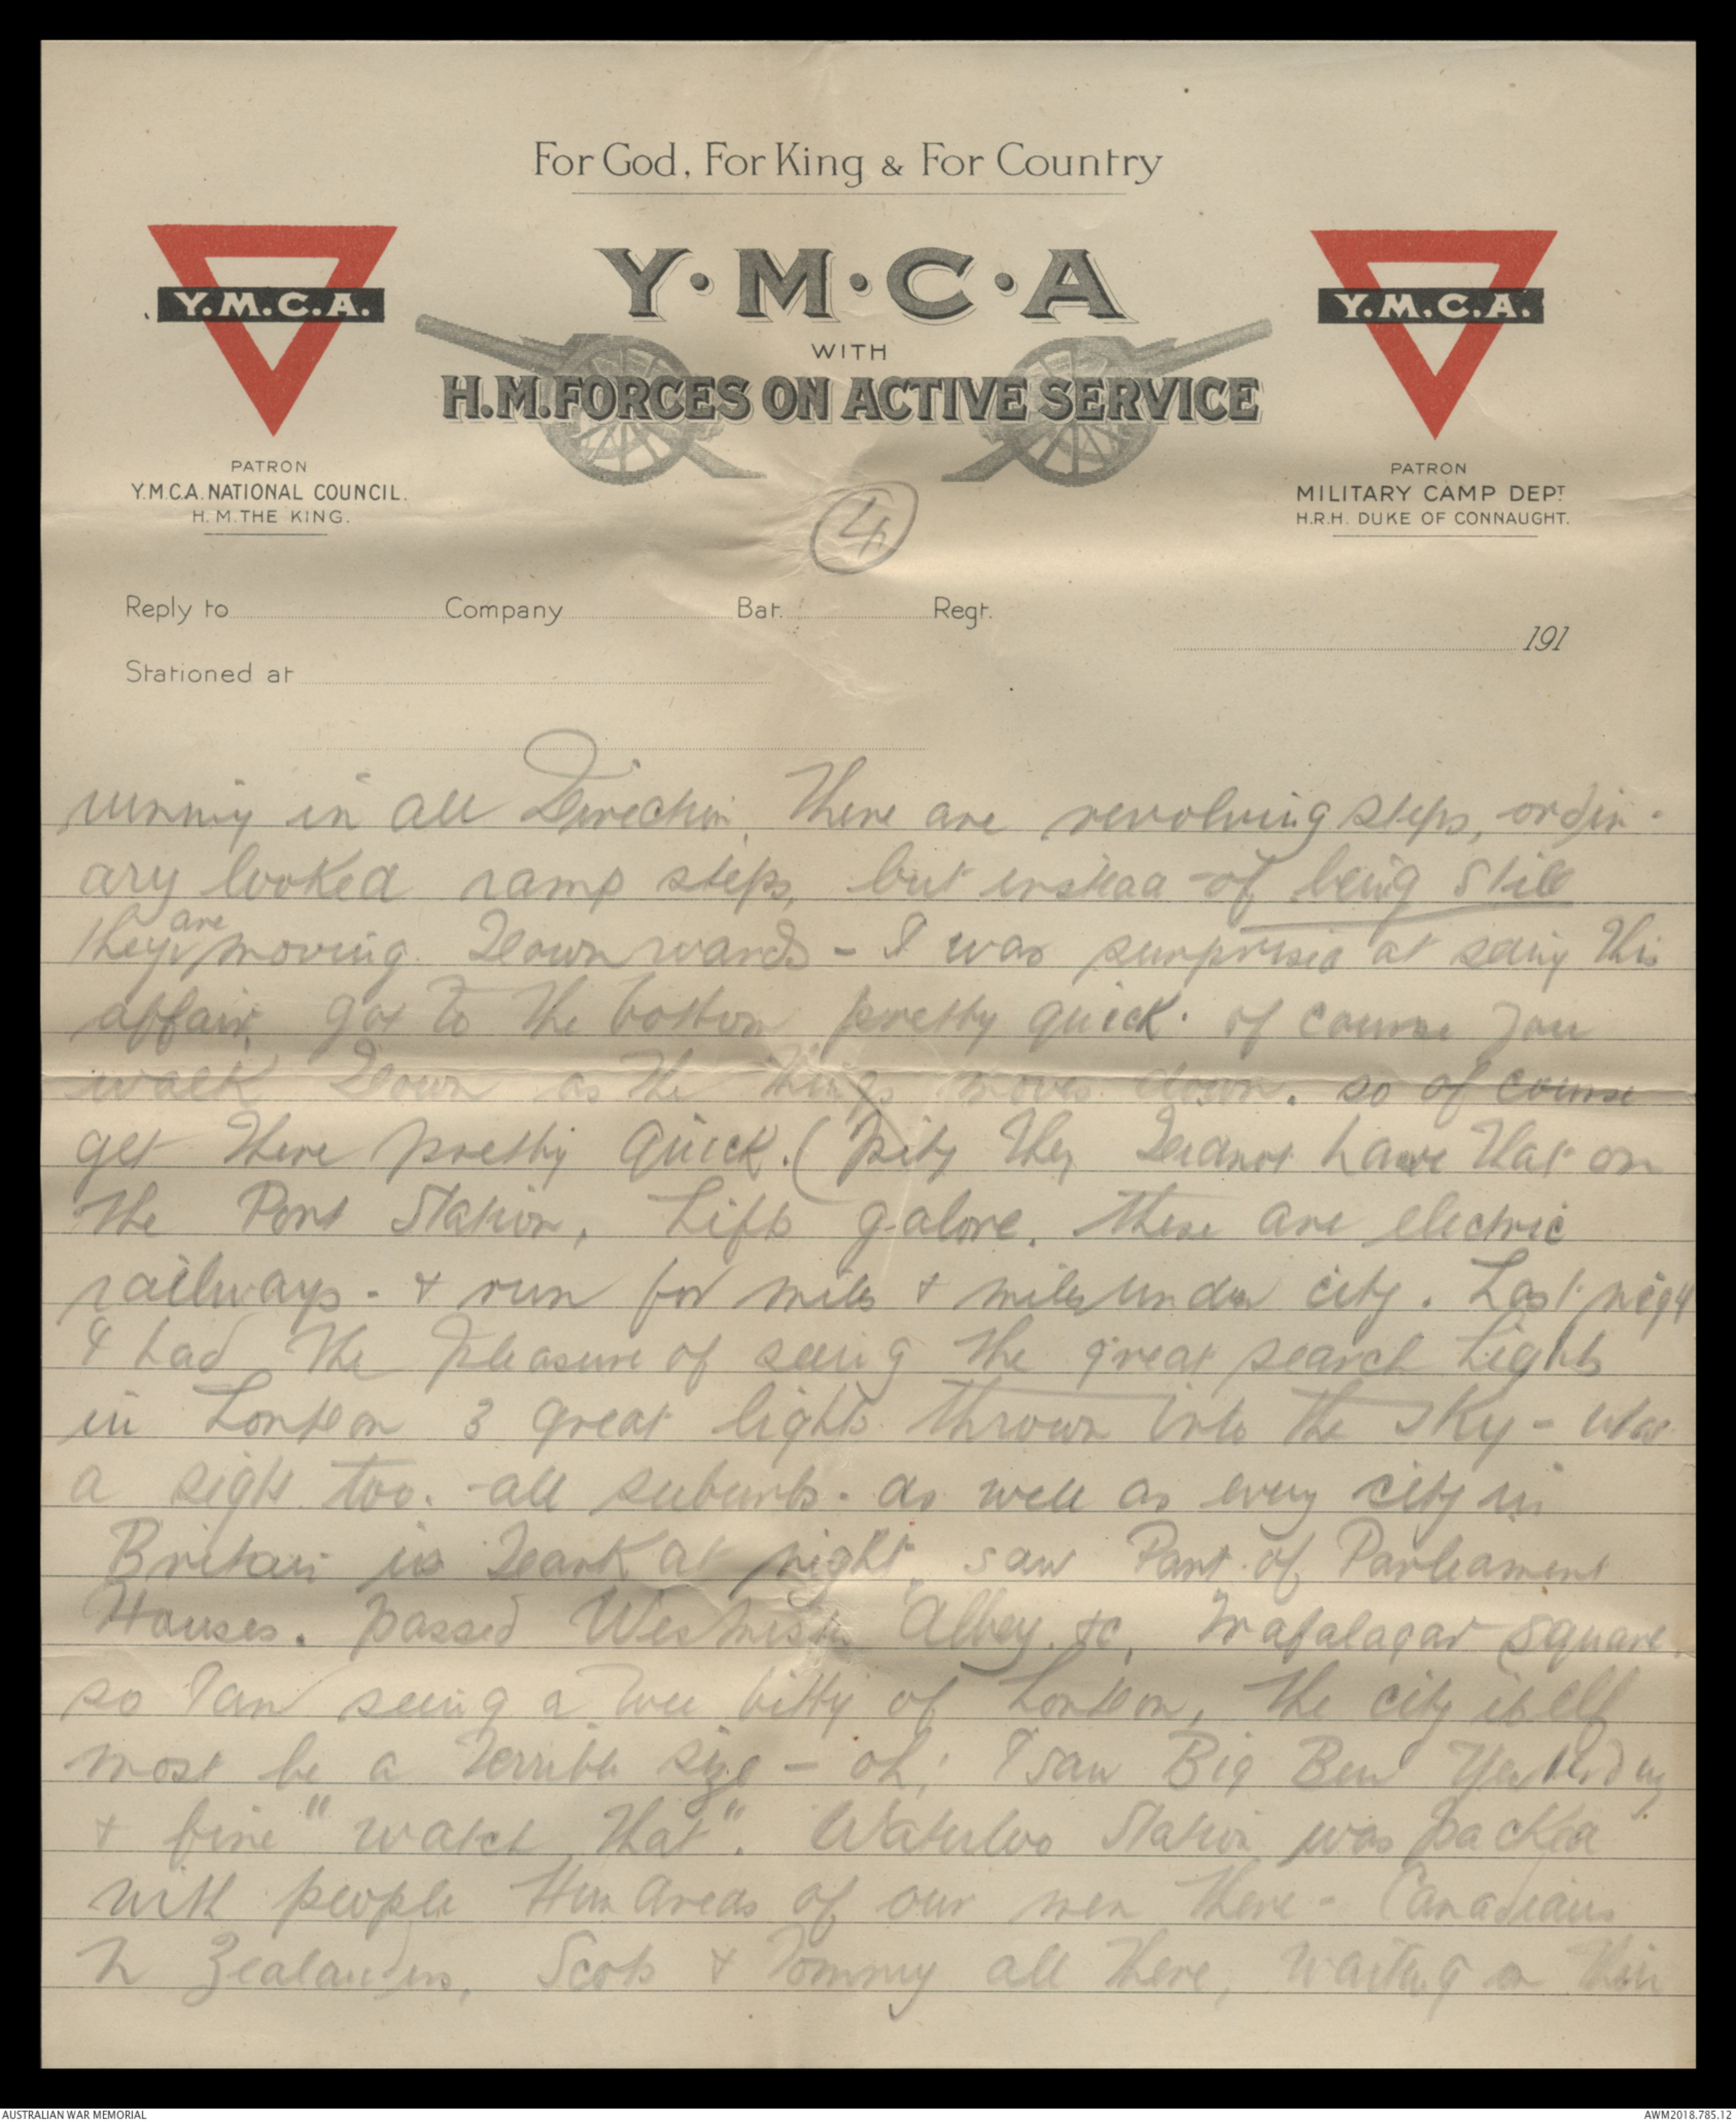 For God, For King & For Country
Y.M.C.A.
Y.M.C.A
Y.M.C.A.
WITH
H.M. FORCES ON ACTIVE SERVICE
PATRON
Y.M.C.A. NATIONAL COUNCIL.
H.M. THE KING.
PATRON
MILITARY CAMP DEPT
H.R.H. DUKE OF CONNAUGHT.
4
Reply to Company Bat. Regt.
191
Stationed at
running in all Direction. There are revolving steps, ordin-
ary looked ramp steps, but instead of being still
they are moving Downwards - I was surprised at seeing this
affair, got to the bottom pretty quick. of course you
walk Down as the things moves down. so of course
get there pretty quick. (pity they have that on
the Port Station, Lifts galore. these are electric
railways. & run for miles & miles under city. Last night
I had the pleasure of seeing the great search Lights
in London 3 great lights thrown into the sky - was
a sight too. - all suburbs. as well as every city in
Britain is Dark at night. saw Part of Parliament
Houses. passed Abbey. &c, Trafalagar Square.
so I am seeing a wee bitty of London, the city itself
most be a terrible size - oh; I saw Big Ben Yesterday
& fine "watch that". Waterloo Station was packed
with people Hundreds of our men there - Canadians
N Zealanders, Scots & Tommy all there, waiting on their
AUSTRALIAN WAR MEMORIAL
AWM2018.785.12